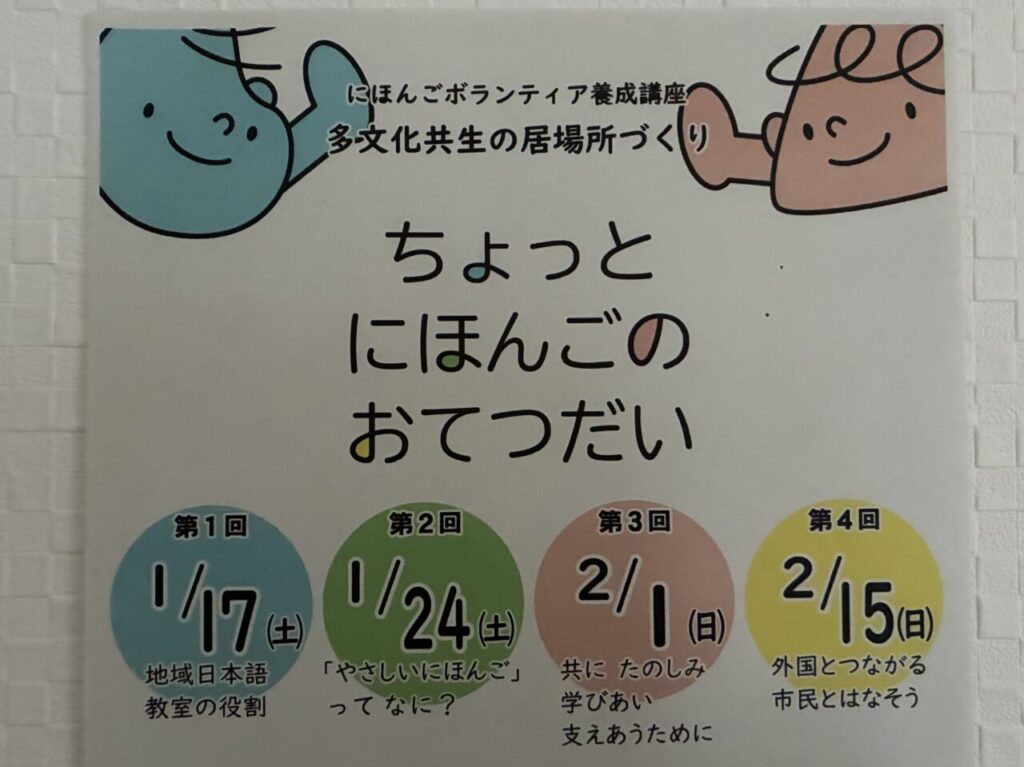 にほんごボランティア養成講座
多文化共生の居場所づくり
ちょっと
にほんごの
おてつだい
第1回
1/17(土)
地域日本語
教室の役割
第2回
1/24(土)
「やさしいにほんご」
って なに？
第3回
2/1(日)
共に たのしみ
学びあい
支えあうために
第4回
2/15(日)
外国とつながる
市民とはなそう